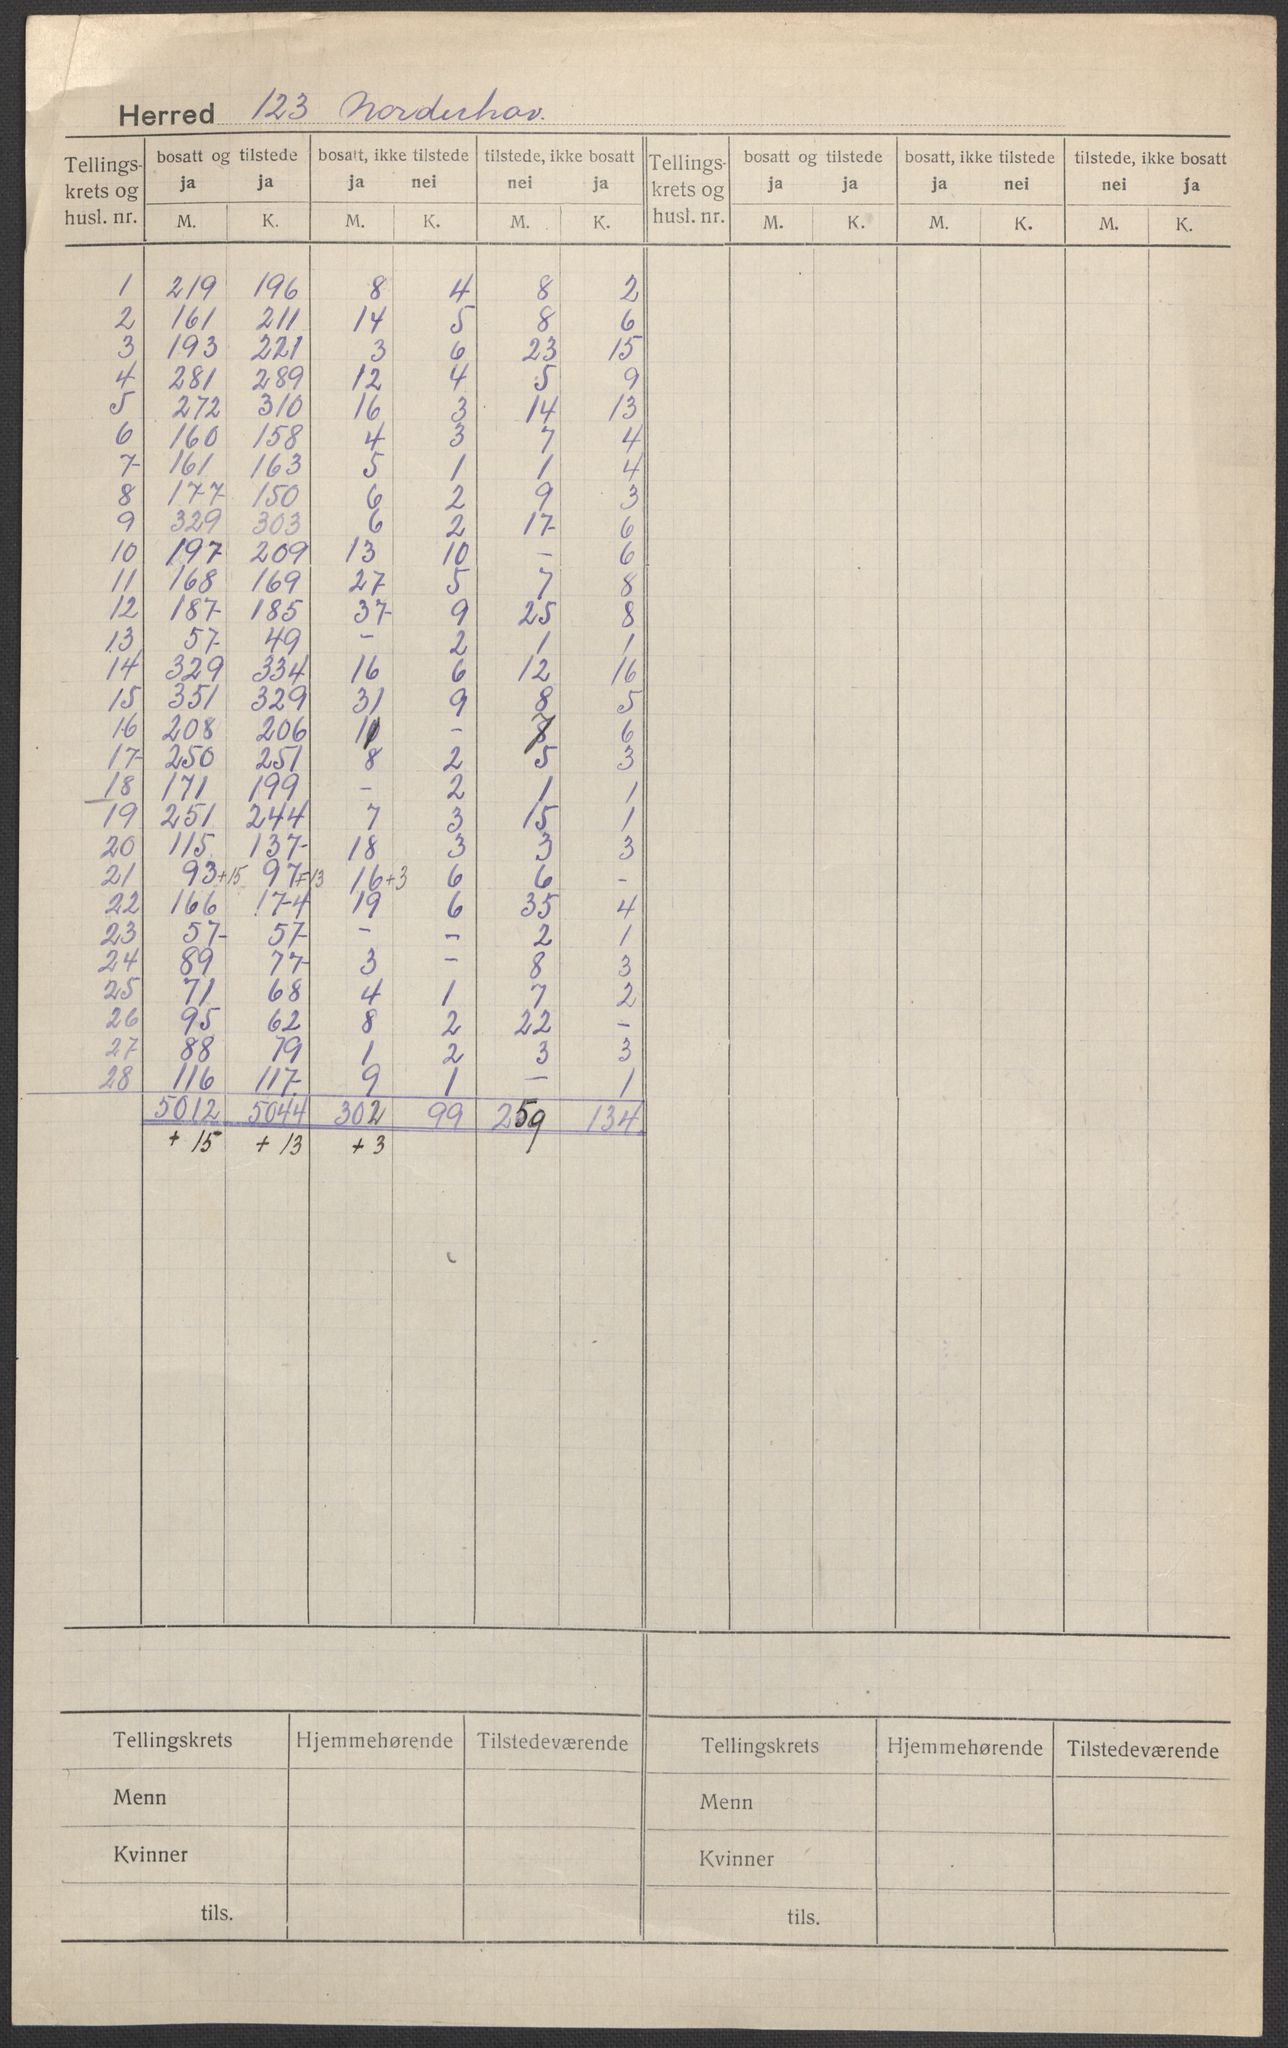 Herred 123 Norderhov.
Tellings-krets og husl. nr. bosatt og tilstede bosatt, ikke tilstede tilstede, ikke bosatt Tellings-krets og husl. nr. bosatt og tilstede bosatt, ikke tilstede tilstede, ikke bosatt
ja ja ja nei nei ja ja ja ja nei nei ja
M. K. M. K. M. K. M. K. M. K. M. K.
1 219 196 8 4 8 2
2 161 211 14 5 8 6
3 193 221 3 6 23 15
4 281 289 12 4 5 9
5 272 310 16 3 14 13
6 160 158 4 3 7 4
7 161 163 5 1 1 4
8 177 150 6 2 9 3
9 329 303 6 2 17 6
10 197 209 13 10 - 6
11 168 169 27 5 7 8
12 187 185 37 9 25 8
13 57 49 - 2 1 1
14 329 334 16 6 12 16
15 351 329 31 9 8 5
16 208 206 11 - 7 6
17 250 251 8 2 5 3
18 171 199 - 2 1 1
19 251 244 7 3 15 1
20 115 137 18 3 3 3
21 93+15 97+13 16+3 6 6 -
22 166 174 19 6 35 4
23 57 57 - - 2 1
24 89 77 3 - 8 3
25 71 68 4 1 7 2
26 95 62 8 2 22 -
27 88 79 1 2 3 3
28 116 117 9 1 - 1
5012 5044 302 99 259 134
+ 15 + 13 + 3
Tellingskrets Hjemmehørende Tilstedeværende Tellingskrets Hjemmehørende Tilstedeværende
Menn Menn
Kvinner Kvinner
tils. tils.